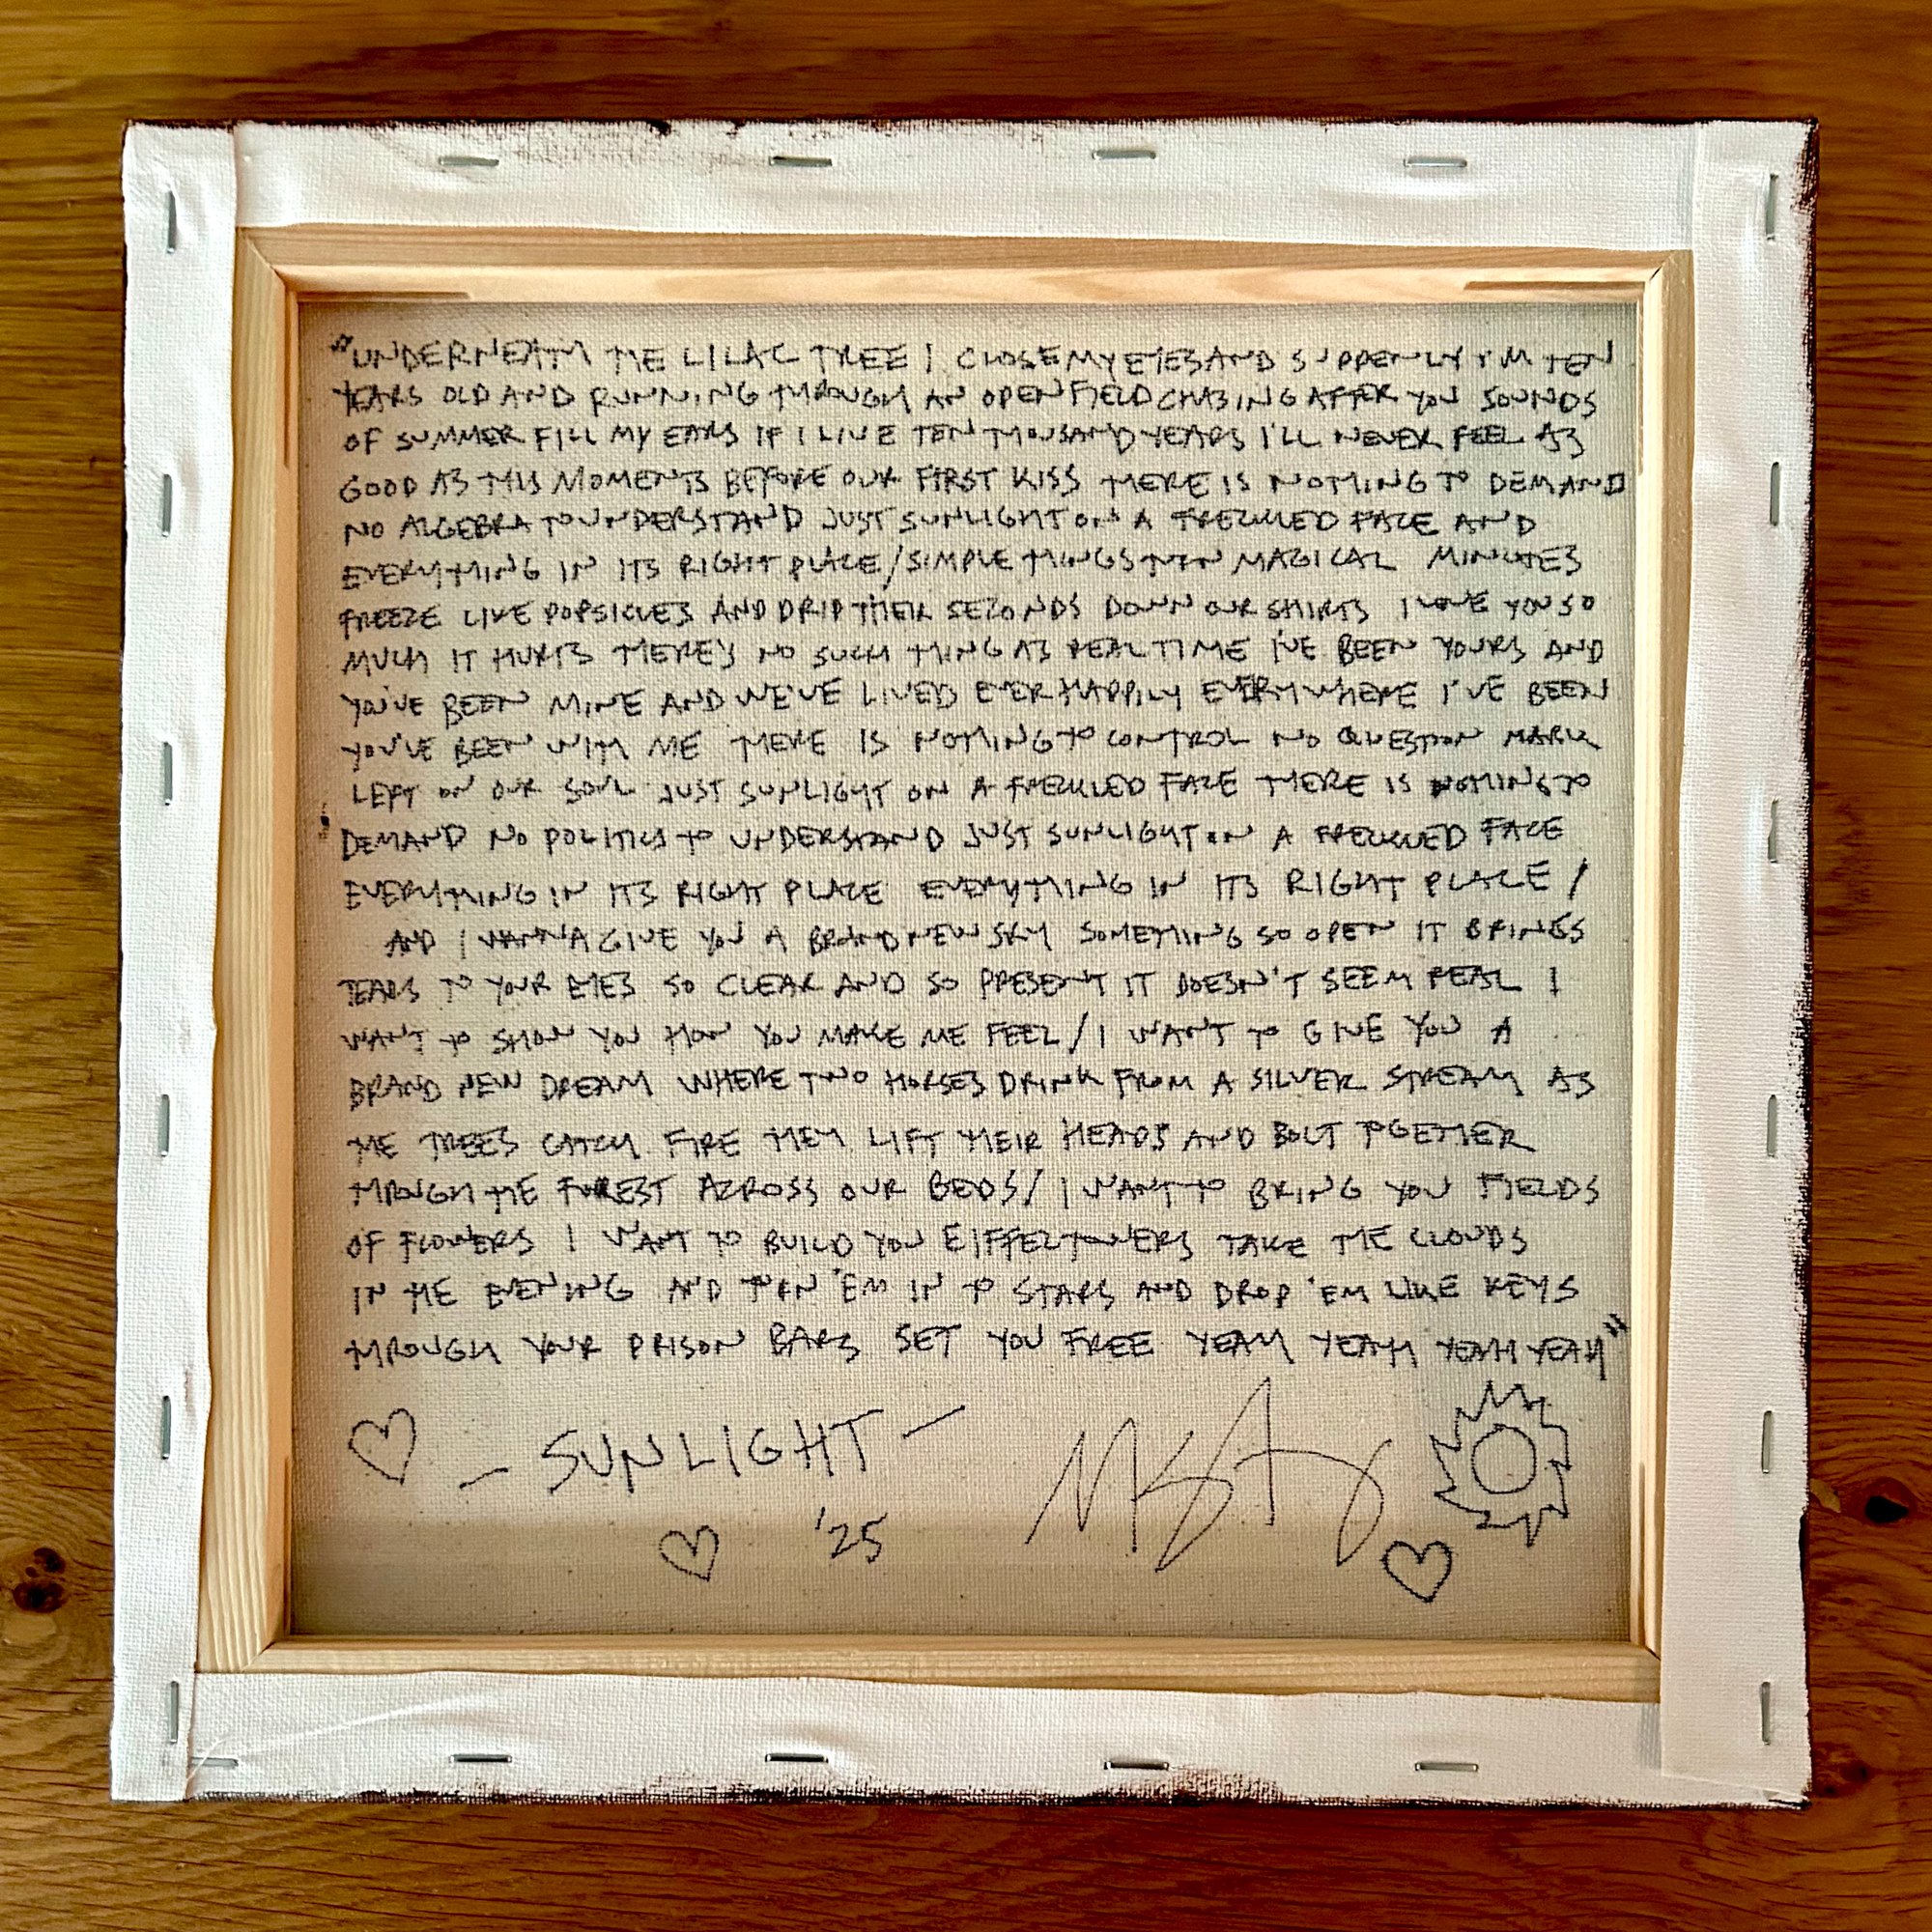 "UNDERNEATH THE LILAC TREE I CLOSE MY EYES AND SUDDENLY I'M TEN
YEARS OLD AND RUNNING THROUGH AN OPEN FIELD CHASING AFTER YOU SOUNDS
OF SUMMER FILL MY EARS IF I LIVE TEN THOUSAND YEARS I'LL NEVER FEEL AS
GOOD AS THIS MOMENTS BEFORE OUR FIRST KISS THERE IS NOTHING TO DEMAND
NO ALGEBRA TO UNDERSTAND JUST SUNLIGHT ON A FRECKLED FACE AND
EVERYTHING IN ITS RIGHT PLACE / SIMPLE THINGS TURN MAGICAL MINUTES
FREEZE LIKE POPSICLES AND DRIP THEIR SECONDS DOWN OUR SHIRTS I LOVE YOU SO
MUCH IT HURTS THERE'S NO SUCH THING AS REAL TIME I'VE BEEN YOURS AND
YOU'VE BEEN MINE AND WE'VE LIVED EVER HAPPILY EVERYWHERE I'VE BEEN
YOU'VE BEEN WITH ME THERE IS NOTHING TO CONTROL NO QUESTION MARK
LEFT ON OUR SOUL JUST SUNLIGHT ON A FRECKLED FACE THERE IS NOTHING TO
DEMAND NO POLITICS TO UNDERSTAND JUST SUNLIGHT ON A FRECKLED FACE
EVERYTHING IN ITS RIGHT PLACE EVERYTHING IN ITS RIGHT PLACE /
AND I WANNA GIVE YOU A BRAND NEW SKY SOMETHING SO OPEN IT BRINGS
TEARS TO YOUR EYES SO CLEAR AND SO PRESENT IT DOESN'T SEEM REAL I
WANT TO SHOW YOU HOW YOU MAKE ME FEEL / I WANT TO GIVE YOU A
BRAND NEW DREAM WHERE TWO HORSES DRINK FROM A SILVER STREAM AS
THE TREES CATCH FIRE THEY LIFT THEIR HEADS AND BOLT TOGETHER
THROUGH THE FOREST ACROSS OUR BEDS / I WANT TO BRING YOU FIELDS
OF FLOWERS I WANT TO BUILD YOU EIFFEL TOWERS TAKE THE CLOUDS
IN THE EVENING AND TURN 'EM IN TO STARS AND DROP 'EM LIKE KEYS
THROUGH YOUR PRISON BARS SET YOU FREE YEAH YEAH YEAH YEAH"
– SUNLIGHT –
'25